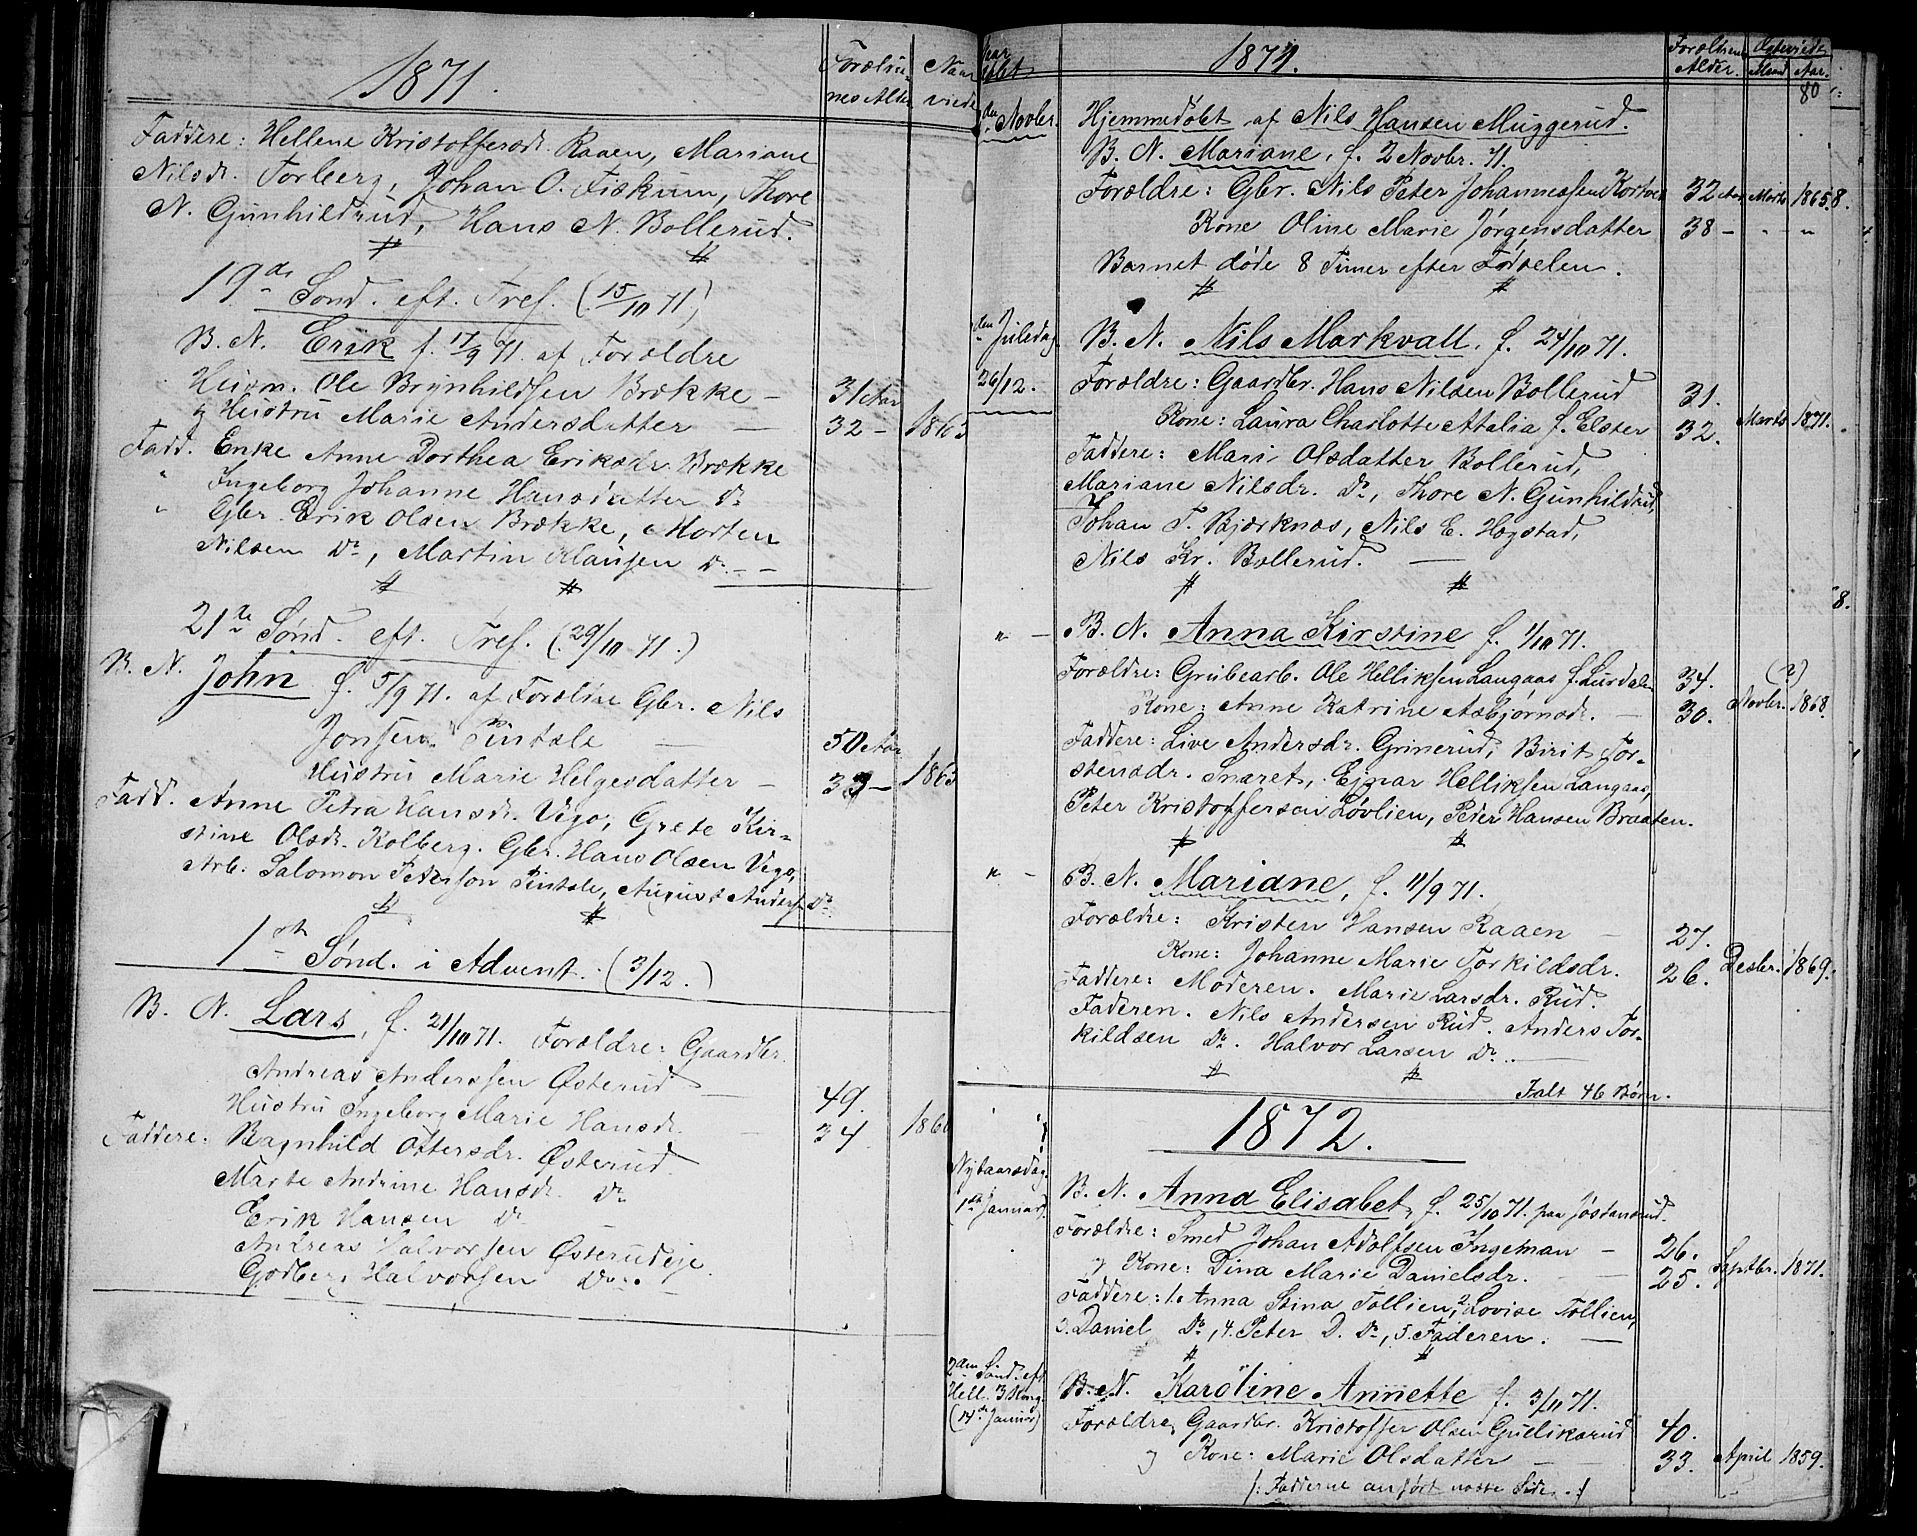 1871.
Forældre- Naar
nes Alder viede
Faddere: Hellene Kristoffersdr. Raaen, Mariane
Nilsdr. Torberg, Johan O. Fiskum, Thore
N. Gunhildrud, Hans N. Bollerud.
19de Sønd. eft. Tref. (15/10 71)
B. N. Erik f. 17/9 71. af Forældre
Husm. Ole Brynhildsen Brække — 31 Aar
og Hustru Marie Andersdatter — 32 — 1863
Fadd. Enke Anne Dorthea Eriksdr. Brække
" Ingeborg Johanne Hansdatter Do
" Gbr. Erik Olsen Brække, Morten
Nilsen Do, Martin Klausen Do - -
21de Sønd. eft. Tref. (29/10 71.)
B. N. John f. 5/9 71. af Forældre Gbr. Nils
Jonsen Tintsle — 50 Aar
Hustru Marie Helgesdatter — 33 — 1863
Fadd. Anne Petra Hansdr. Vego, Grete Kir-
stine Olsdr. Kolberg. Gbr. Hans Olsen Vego,
Arb: Salomon Pederson Tintsle, August Anders. Do
1ste Sønd. i Advent. (3/12.)
B. N. Lars, f. 21/10 71. Forældre: Gaardbr.
Andreas Anderssen Østerud — 49.
Hustru Ingeborg Marie Hansdr. — 34 1860
Faddere: Ragnhild Ottersdr. Østerud.
Marte Andrine Hansdr. Do
Erik Hansen Do
Andreas Halvorsen Østerudeje.
Godberg Halvorsen Do.
1871.
Forældrenes Ægteviede
Alder. Maaned Aar.
Novbr. Hjemmedøbt af Nils Hansen Muggerud.
B. N. Mariane, f. 2 Novbr. 71.
Forældre: Gbr. Nils Peter Johannessen 32 Aar Marts 1865
Kone Oline Marie Jørgensdatter 38 — " — "
Barnet døde 8 Timer efter Fødselen.
Juledag B. N. Nils Markvall, f. 24/10 71.
26/12. Forældre: Gaardbr. Hans Nilsen Bollerud 31.
Kone: Laura Charlotte Attalia f. Elster 32. Marts 1871.
Faddere: Mari Olsdatter Bollerud,
Mariane Nilsdr. Do, Thore N. Gunhildrud,
Johan T. Bjerknes, Nils E. Hogstad,
Nils Kr. Bollerud. —
" — B. N. Anna Kirstine f. 1/10 71.
Forældre: Grubearb. Ole Helliksen Langaas f. Lurdalen 34. (?)
Kone: Anne Katrine Asbjørnsdr. — 30. Novbr. 1868.
Faddere: Live Andersdr. Grinerud, Birit Tor-
stensdr. Snaret, Ejnar Helliksen Langaas,
Peter Kristofferson Løvlien, Peder Hansen Braaten.
" — B. N. Mariane, f. 11/9 71.
Forældre: Kristen Hansen Raaen — 27.
Kone: Johanne Marie Torkildsdr. 26. Desbr. 1869.
Faddere: Moderen. Marie Larsdr. Rud.
Faderen. Nils Andersen Rud. Anders Tor-
kildsen Do. Halvor Larsen Do.
Ialt 46 Børn.
1872.
Nytaarsdag B. N. Anna Elisabet, f. 25/10 71. paa Jøstensrud.
(1ste Januar) Forældre: Smed Johan Adolfsen Ingeman — 26.
og Kone: Dina Marie Danielsdr. — 25. Septbr. 1871.
Faddere: 1. Anna Stina Tollien, 2. Lovise Tollien,
3. Daniel Do, 4. Peter D. Do, 5. Faderen. —
2den Sønd. eft.
Hell. 3 Kong. B. N. Karoline Annette f. 3/11 71.
(14de Januar) Forældre, Gaardbr. Kristoffer Olsen Gudikarud 40.
og Kone: Marie Olsdatter — 33. April 1859.
/: Fadderne anført næste Side. :/